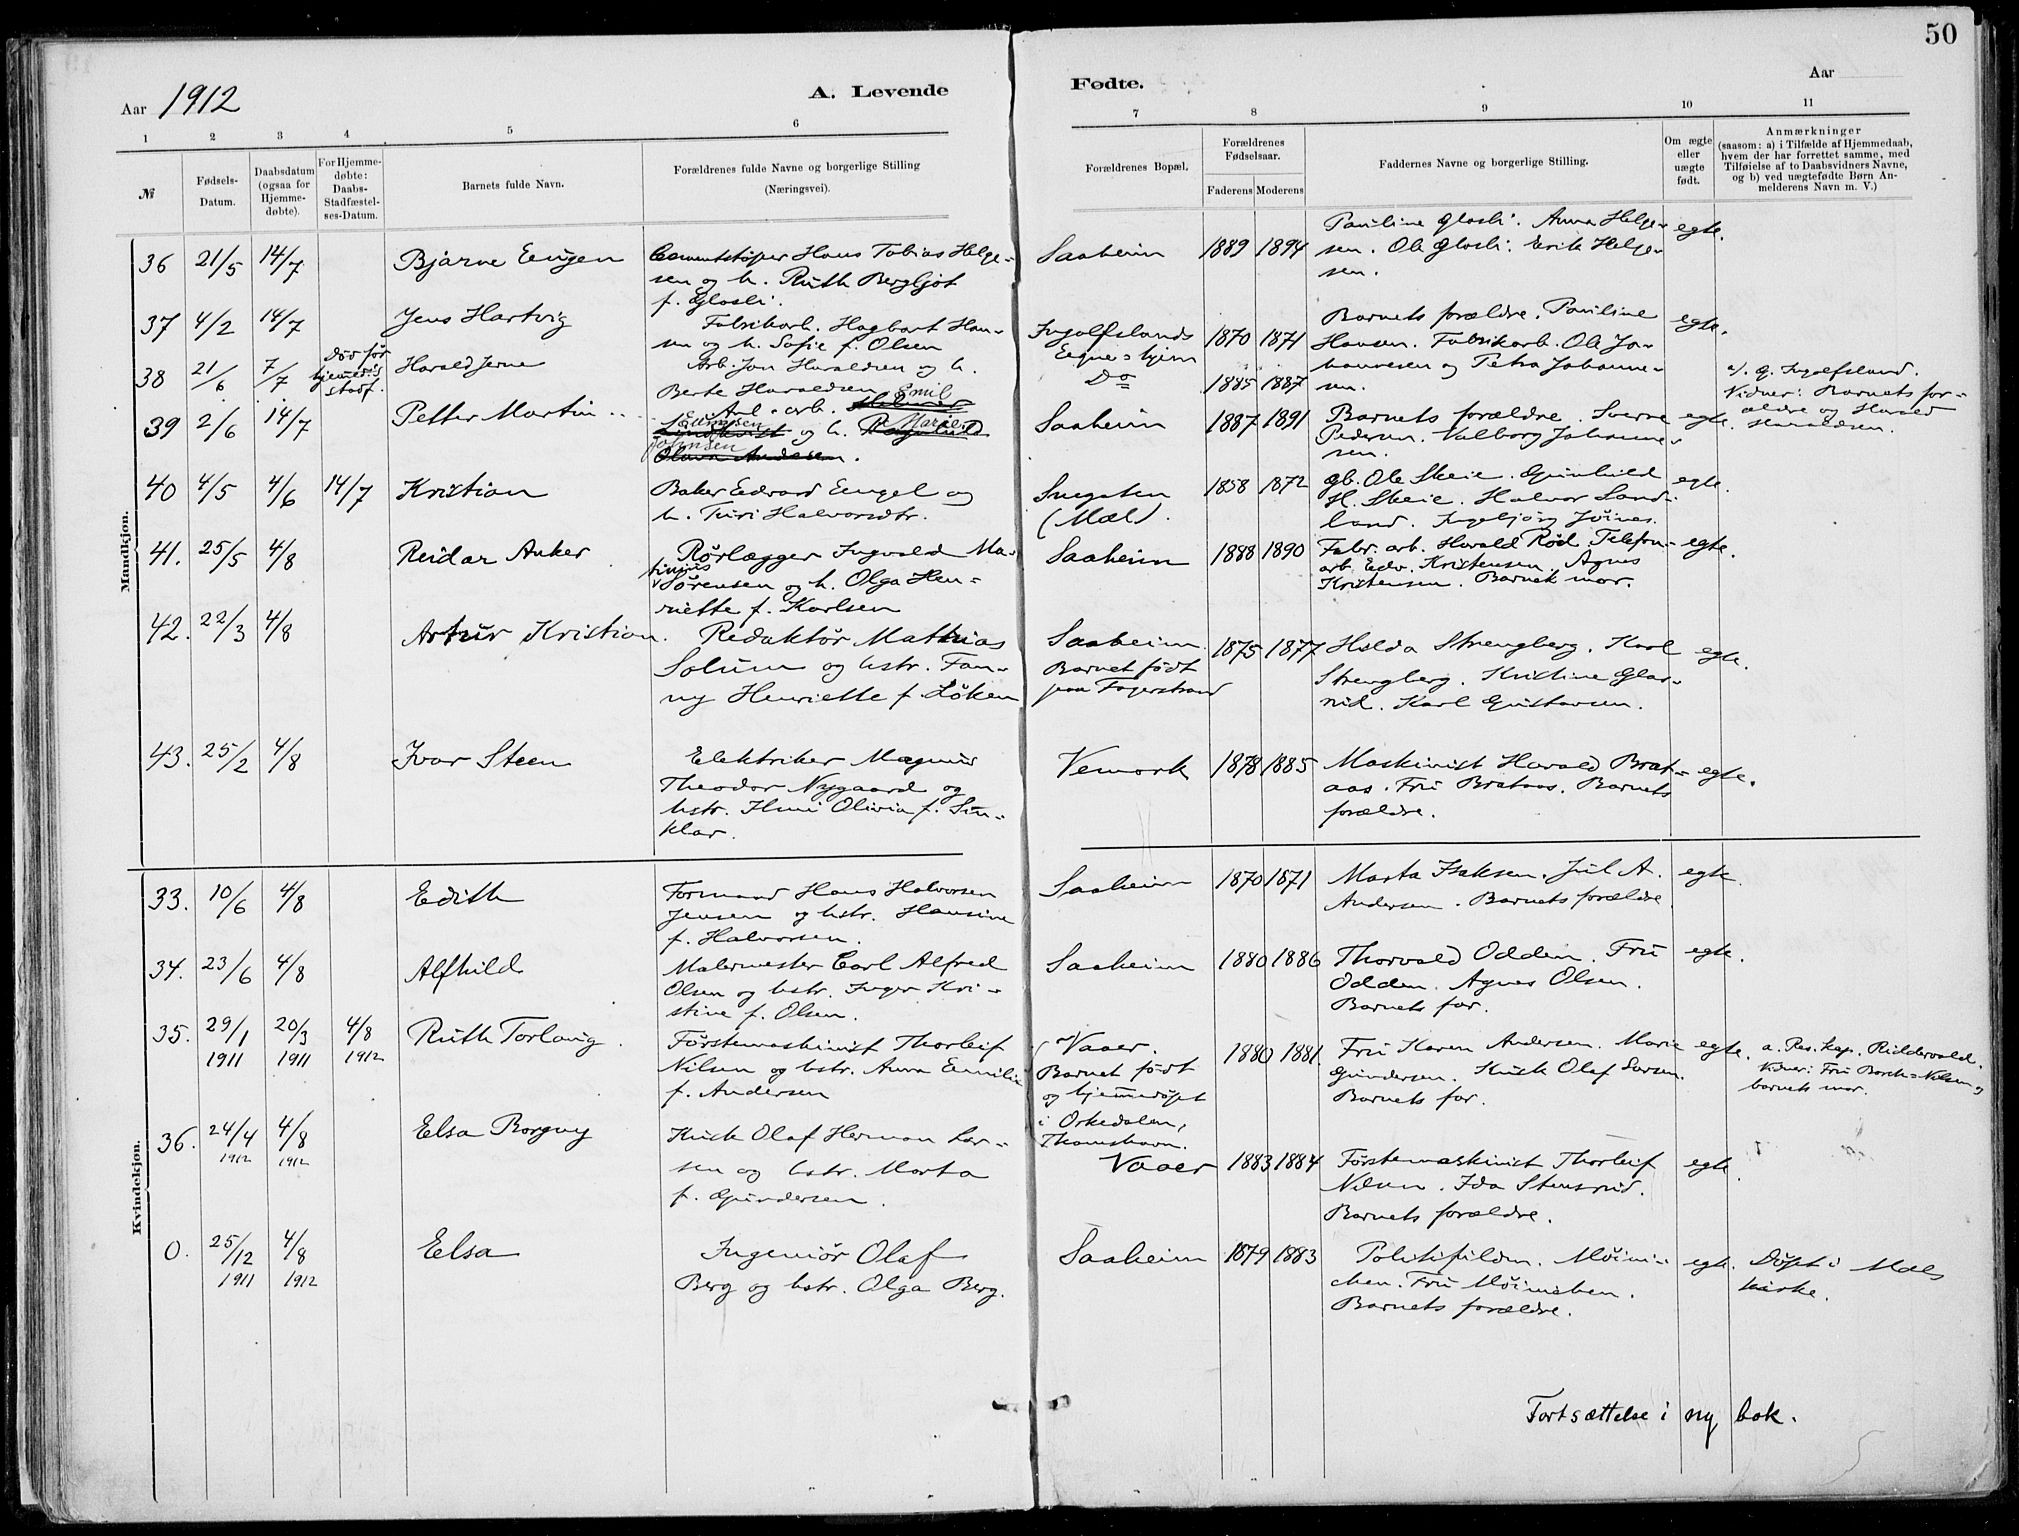 50
Aar 1912
A. Levende
Fødte.
Aar
1
2
3
4
5
6
7
8
9
10
11
№
Fødsels-
Datum.
Daabsdatum
(ogsaa for
Hjemme-
døbte).
For Hjemme-
døbte:
Daabs-
Stadfæstel-
ses-Datum.
Barnets fulde Navn.
Forældrenes fulde Navne og borgerlige Stilling
(Næringsvei).
Forældrenes Bopæl.
Forældrenes
Fødselsaar.
Faderens
Moderens
Faddernes Navne og borgerlige Stilling.
Om ægte
eller
uægte
født.
Anmærkninger
(saasom: a) i Tilfælde af Hjemmedaab,
hvem der har forrettet samme, med
Tilføielse af to Daabsvidners Navne,
og b) ved uægtefødte Børn An-
melderens Navn m. V.)
Mandkjøn.
36 21/5 14/7
Bjarne Eugen
Cementstøper Hans Tobias Helge-
sen og h. Ruth Bergljot
f. Glosli.
Saaheim
1889 1894
Pauline Glosli. Anna Helge-
sen. Ole Glosli. Erik Helge-
sen.
egte.
37 4/2 14/7
Jens Hartvig
Fabrikarb. Hagbart Han-
sen og h. Sofie f. Olsen
Ingolfslands
Egne-hjem
1870 1871
Barnets forældre. Pauline
Hansen. Fabrikarb. Ole Jo-
hannesen og Petra Johanne-
sen.
egte.
38 21/6 7/7
Død før
hjemmed's
stadf.
Harald Jerne
Arb. Jon Haraldsen og h.
Berte Haraldsen
Do
1885 1887
a). G. Ingolfsland.
Vidner: Barnets for-
ældre og Harald
Haraldsen.
39 2/6 14/7
Petter Martin
Anl. arb. Emil
og h.
Olava Andersen.
Saaheim
1887 1891
Barnets forældre. Sverre
Pedersen. Valborg Johanne-
sen.
egte.
40 4/5 4/6 14/7
Kristian
Baker Edvard Engel og
h. Turi Halvorsdtr.
(Mæl).
1858 1872
gb. Ole Skeie. Gunhild
H. Skeie. Halvor Sand-
land. Ingebjørg
egte.
41. 25/5 4/8
Reidar Anker
Rørlægger Ingvald Ma-
tinius
Sørensen og h. Olga Hen-
riette f. Karlsen
Saaheim
1888 1890
Fabr. arb. Harald Rød. Telefon-
arb. Edv. Kristensen. Agnes
Kristensen. Barnets mor.
egte.
42. 22/3 4/8
Artur Kristian.
Redaktør Mathias
Solum og hstr. Fan-
ny Henriette f. Løken
Saaheim.
Barnet født
paa Fagerstrand
1875 1877
Hilda Strengberg. Karl
Strengberg. Kristine Glas-
rud. Karl Gustavsen.
egte.
43. 25/2 4/8
Ivar Steen
Elektriker Magnus
Theodor Nygaard og
hstr. Olivia f. Sin-
klar.
Vemork
1878 1885
Maskinist Harald Brat-
aas. Fru Brataas. Barnets
forældre.
egte.
Kvindekjøn.
33. 10/6 4/8
Edith
Formand Hans Halvorsen
Jensen og hstr. Hansine
f. Halvorsen.
Saaheim
1870 1871
Marta Isaksen. Jul A.
Andersen. Barnets forældre.
egte.
34. 23/6 4/8
Alfhild
Malermester Carl Alfred
Olsen og hstr. Inger Kri-
stine f. Olsen.
Saaheim
1880 1886
Thorvald Odden. Fru
Odden. Agnes Olsen.
Barnets far.
egte.
35. 29/1 1911 20/3 1911 4/8 1912
Ruth Torlaug.
Førstemaskinist Thorleif
Nilsen og hstr. Anna Emilie
f. Andersen
Vaaer.
Barnet født
og hjemmedøpt
i Orkedalen,
Thamshavn.
1880 1881.
Fru Karen Andersen. Marie
Gundersen. Kusk Olaf Larsen.
Barnets far.
egte.
a. Res. kap. Riddervold.
Vidner: Fru Borch-Nilsen og
barnets mor.
36. 24/4 1912 4/8 1912
Elsa Borgny
Kusk Olaf Herman Lar-
sen og hstr. Marta
f. Gundersen.
Vaaer
1883 1884
Førstemaskinist Thorleif
Nilsen. Ida Stensrud.
Barnets forældre.
egte.
0. 25/12 1911 4/8 1912
Elsa
Ingeniør Olaf
Berg og hstr. Olga Berg.
Saaheim
1879 1883
Politifuldm. Møini-
chen. Fru Møinichen.
Barnets forældre.
egte.
Døpt i Mæls
kirke.
Fortsættelse i ny bok.